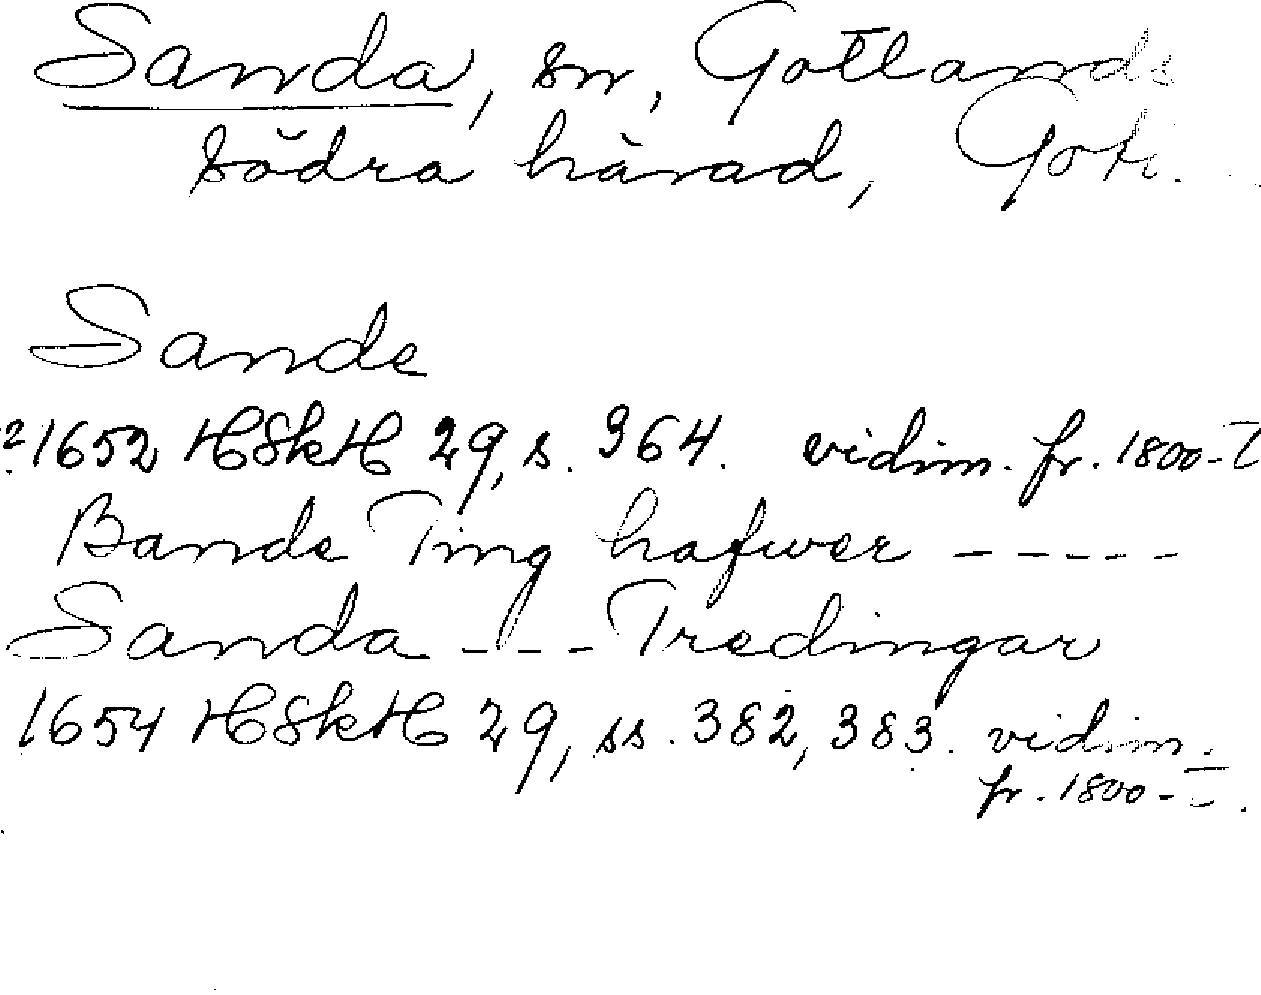 Sanda, sn, Gotlands
södra härad, Gotl.
Sande
?1652 HSkH 29, s. 364. vidim. fr. 1800-T
Bande Ting hafwer -----
Sanda --- Tredingar
1654 HSkH 29, ss. 382, 383. vidim.
fr. 1800-T.